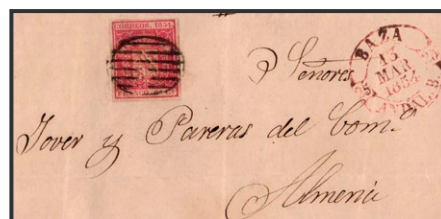 CORREOS. 1854
BAZA
13
MAR
1854
ANDAL. B.
Señores
Jover y Pareras del Com.º
Almeria